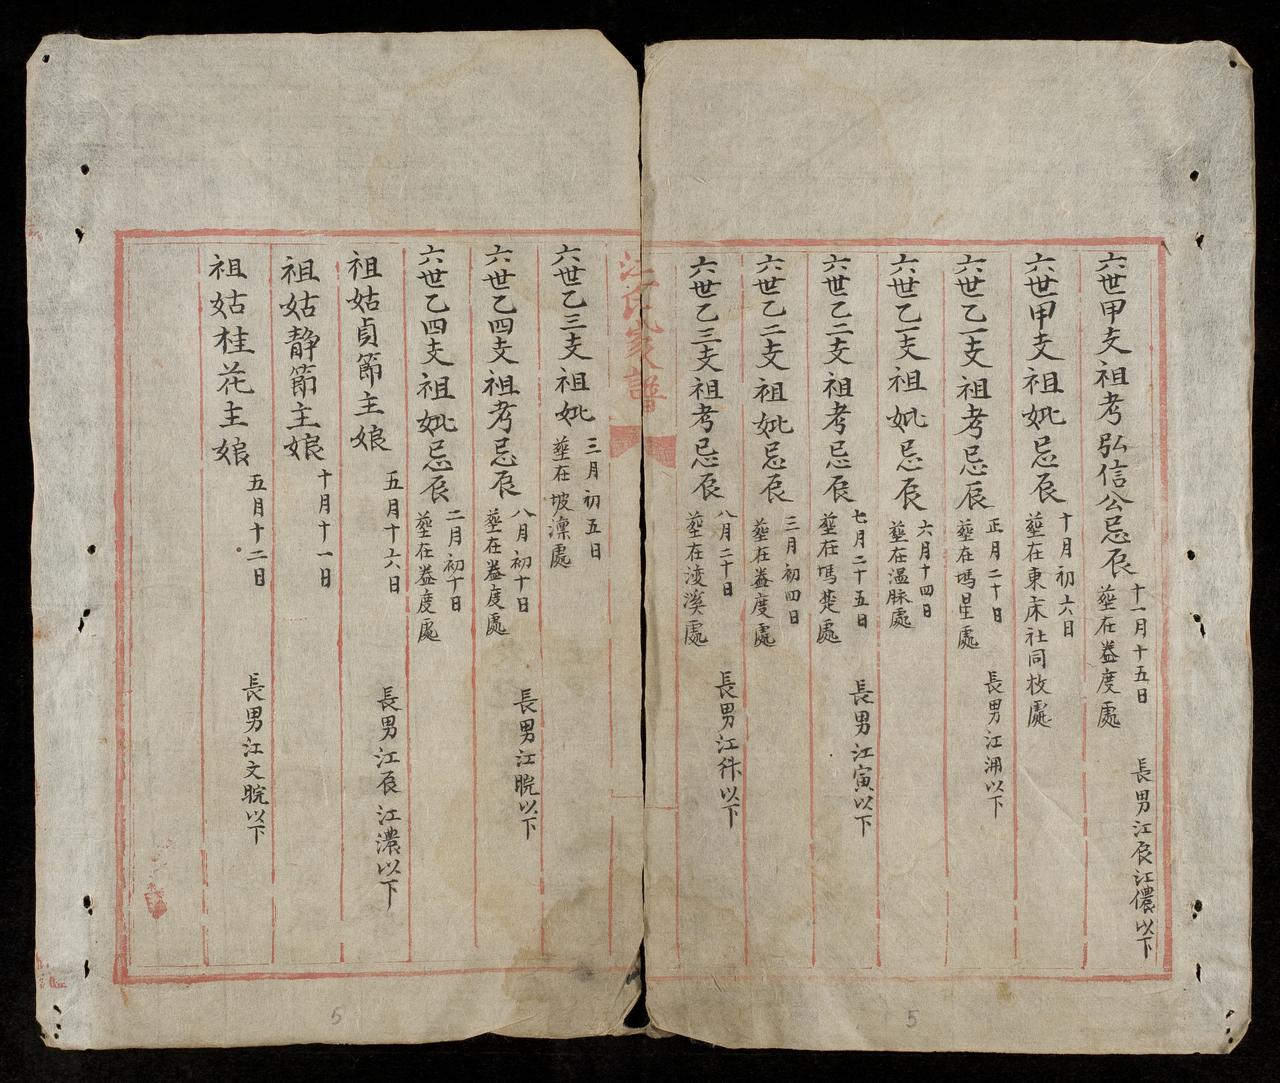 六世甲支祖考弘信公忌辰
十一月十五日
塟在益度處
長男江辰江儂以下
六世甲支祖妣忌辰
十月初六日
塟在東床社同枚處
六世乙一支祖考忌辰
正月二十日
塟在塢星處
長男江湧以下
六世乙一支祖妣忌辰
六月十四日
塟在温脉處
六世乙二支祖考忌辰
七月二十五日
塟在塢楚處
長男江寅以下
六世乙二支祖妣忌辰
三月初四日
塟在益度處
六世乙三支祖考忌辰
八月二十日
塟在淩溪處
長男江侏以下
江氏家譜
六世乙三支祖妣
三月初五日
塟在坡澟處
六世乙四支祖考忌辰
八月初十日
塟在益度處
長男江晥以下
六世乙四支祖妣忌辰
二月初十日
塟在益度處
祖姑貞節主娘
五月十六日
長男江辰江濃以下
祖姑静節主娘
十月十一日
祖姑桂花主娘
五月十二日
長男江文晥以下
5
5